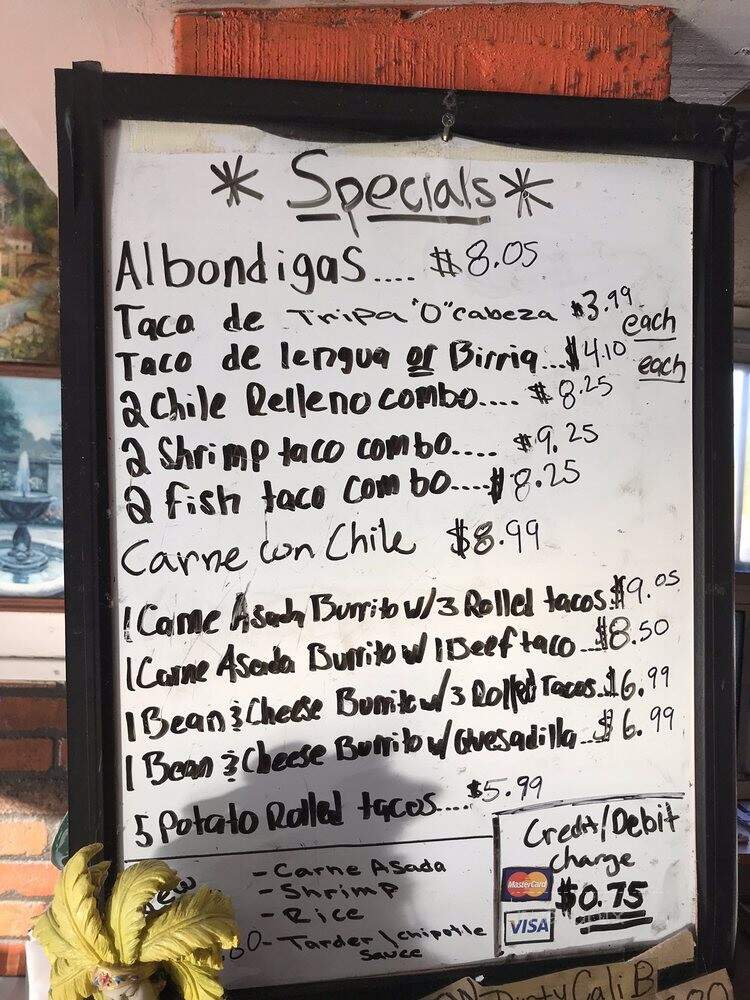 * Specials *
Albondigas.... $8.05
Taco de Tripa "O" cabeza $3.99 each
Taco de lengua or Birria...$4.10 each
2 Chile Relleno combo.... $8.25
2 Shrimp taco combo.... $9.25
2 fish taco combo....$8.25
Carne con Chile $8.99
1 Carne Asada Burrito w/3 Rolled tacos.$9.05
1 Carne Asada Burrito w/ 1 Beef taco...$8.50
1 Bean & Cheese Burrito w/3 Rolled Tacos..$6.99
1 Bean & Cheese Burrito w/Quesadilla...$6.99
5 Potato Rolled tacos.... $5.99
new
- Carne Asada
- Shrimp
- Rice
- Tarder \ chipotle
Sauce
Credit/Debit
charge
MasterCard
$0.75
VISA